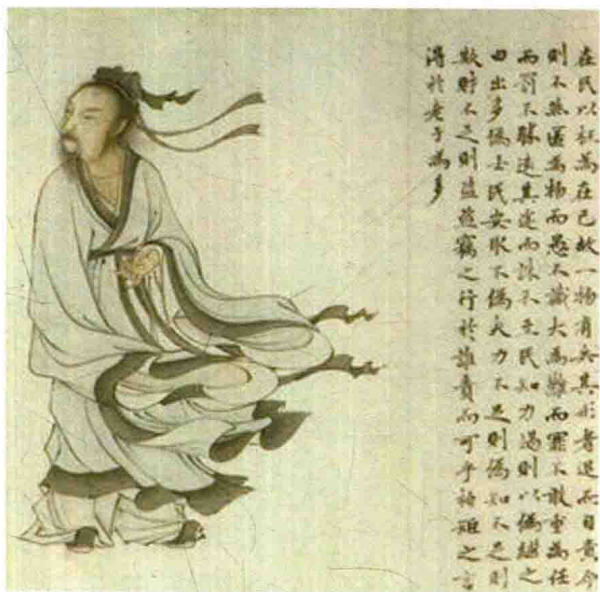 在民以枉為在己故一物有失其形者退而自責今
則不然匿為物而愚不識大為難而罪不敢重為任
而罰不勝遠其途而誅不至民知力竭則以偽繼之
日出多偽士民安取不偽夫力不足則偽知不足則
欺財不足則盜盜竊之行於誰責而可乎矩之言
得於老子為多